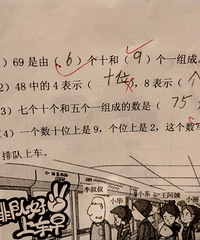 1) 69 是由（ 6 ）个十和（ 9 ）个一组成。
2) 48 中的 4 表示（ 十位 ），8 表示（ 个
3) 七个十和五个一组成的数是（ 75 ）
4) 一个数十位上是 9，个位上是 2，这个数写
排队上车。
李叔叔
小华
小东
王阿姨
小丽
排队好
上车